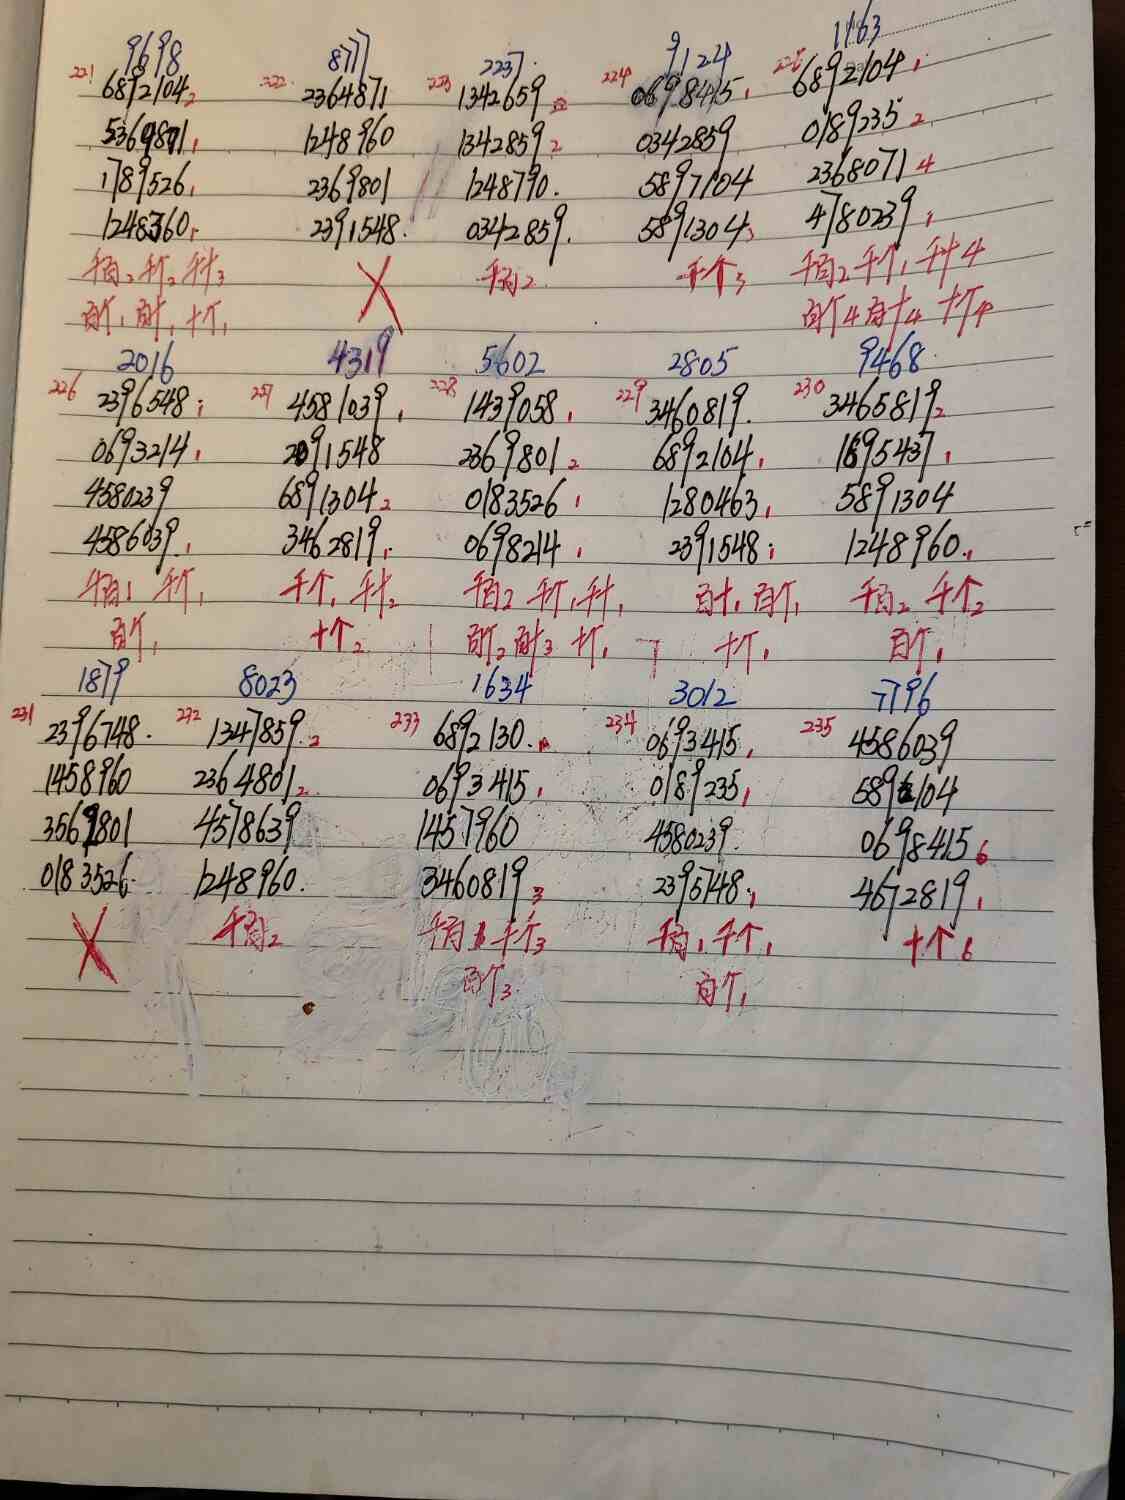 9698 8777 2237. 9124 1163
221 6892104 2 222 2364871 223 1342659 224 0698415 1 225 6892104 1
5369801 1 1248960 1342859 2 0342859 0189235 2
1789526 1 2369801 1248790. 5897104 2368071 4
1248360 1 2391548. 0342859. 5891304 3 4780239 1
千百2 千个2 千十3 X 千百2 千个3 千百2 千个1 千十4
百个1 百十1 十个1 百个4 百十4 十个4
2016 4319 5602 2805 9468
226 2396548 1 227 4581039 1 228 1439058 1 229 3460819. 230 3465819 2
0693214 1 2091548 2369801 2 6892104 1 1895437 1
4580239 6891304 2 0183526 1 1280463 1 5891304
4586039 1 3462819 1 0698214 1 2391548 1 1248960 1
千百1 千个1 千个1 千十2 千百2 千个1 千十1 百十1 百个1 千百2 千个2
百个1 十个2 百个2 百十3 十个1 十个1 百个1
1879 8023 1634 3012 7796
231 2396748. 232 1347859 2 233 6892130. 234 0693415 1 235 4586039
1458960 2364801 2 0693415 1 0189235 1 5892104
3569801 4578639 1457960 4580239. 0698415 6
0183526. 1248960. 3460819 3 2395748 1 4672819 1
X 千百2 千百1 千个3 千百1 千个1 十个6
百个3 百个1